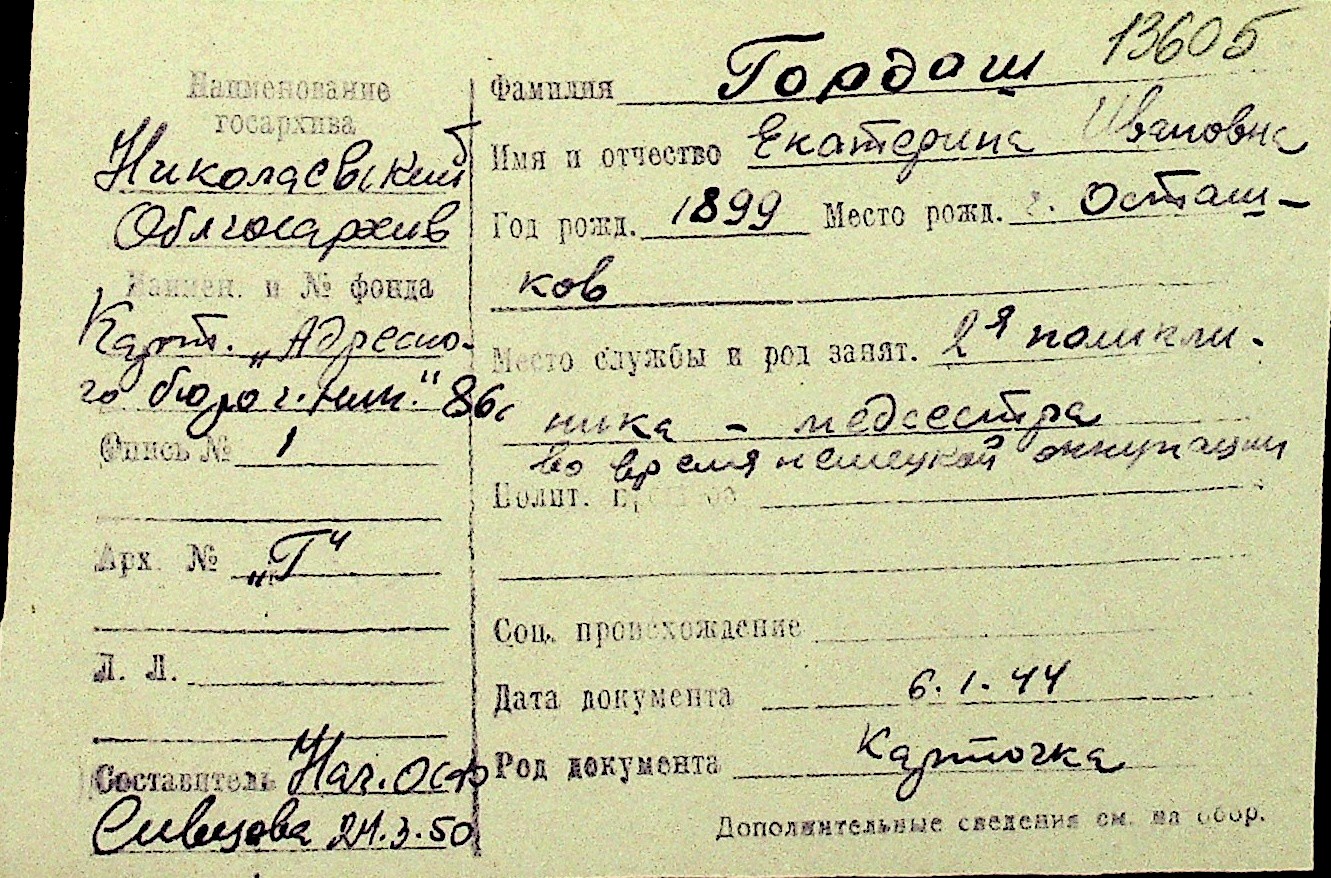 13605
Наименование
госархива
Николаевский
Облгосархив
Наимен. и № фонда
Карт. „Адресно-
го бюро г. Ник." 86с
Опись № 1
Арх. № „Г"
Л. Л.
Составитель Нач. ОСФ
24.3.50
Фамилия Гордаш
Имя и отчество Екатерина Ивановна
Год рожд. 1899 Место рожд. г. Осташ-
ков
Место службы и род занят. 2я поликли-
ника - медсестра
во время немецкой оккупации
Полит.
Соц. происхождение
Дата документа 6.1.44
Род документа Карточка
Дополнительные сведения см. на обор.